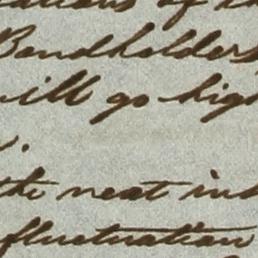 of
Bondholders
will go high
the neat ins
fluctuation